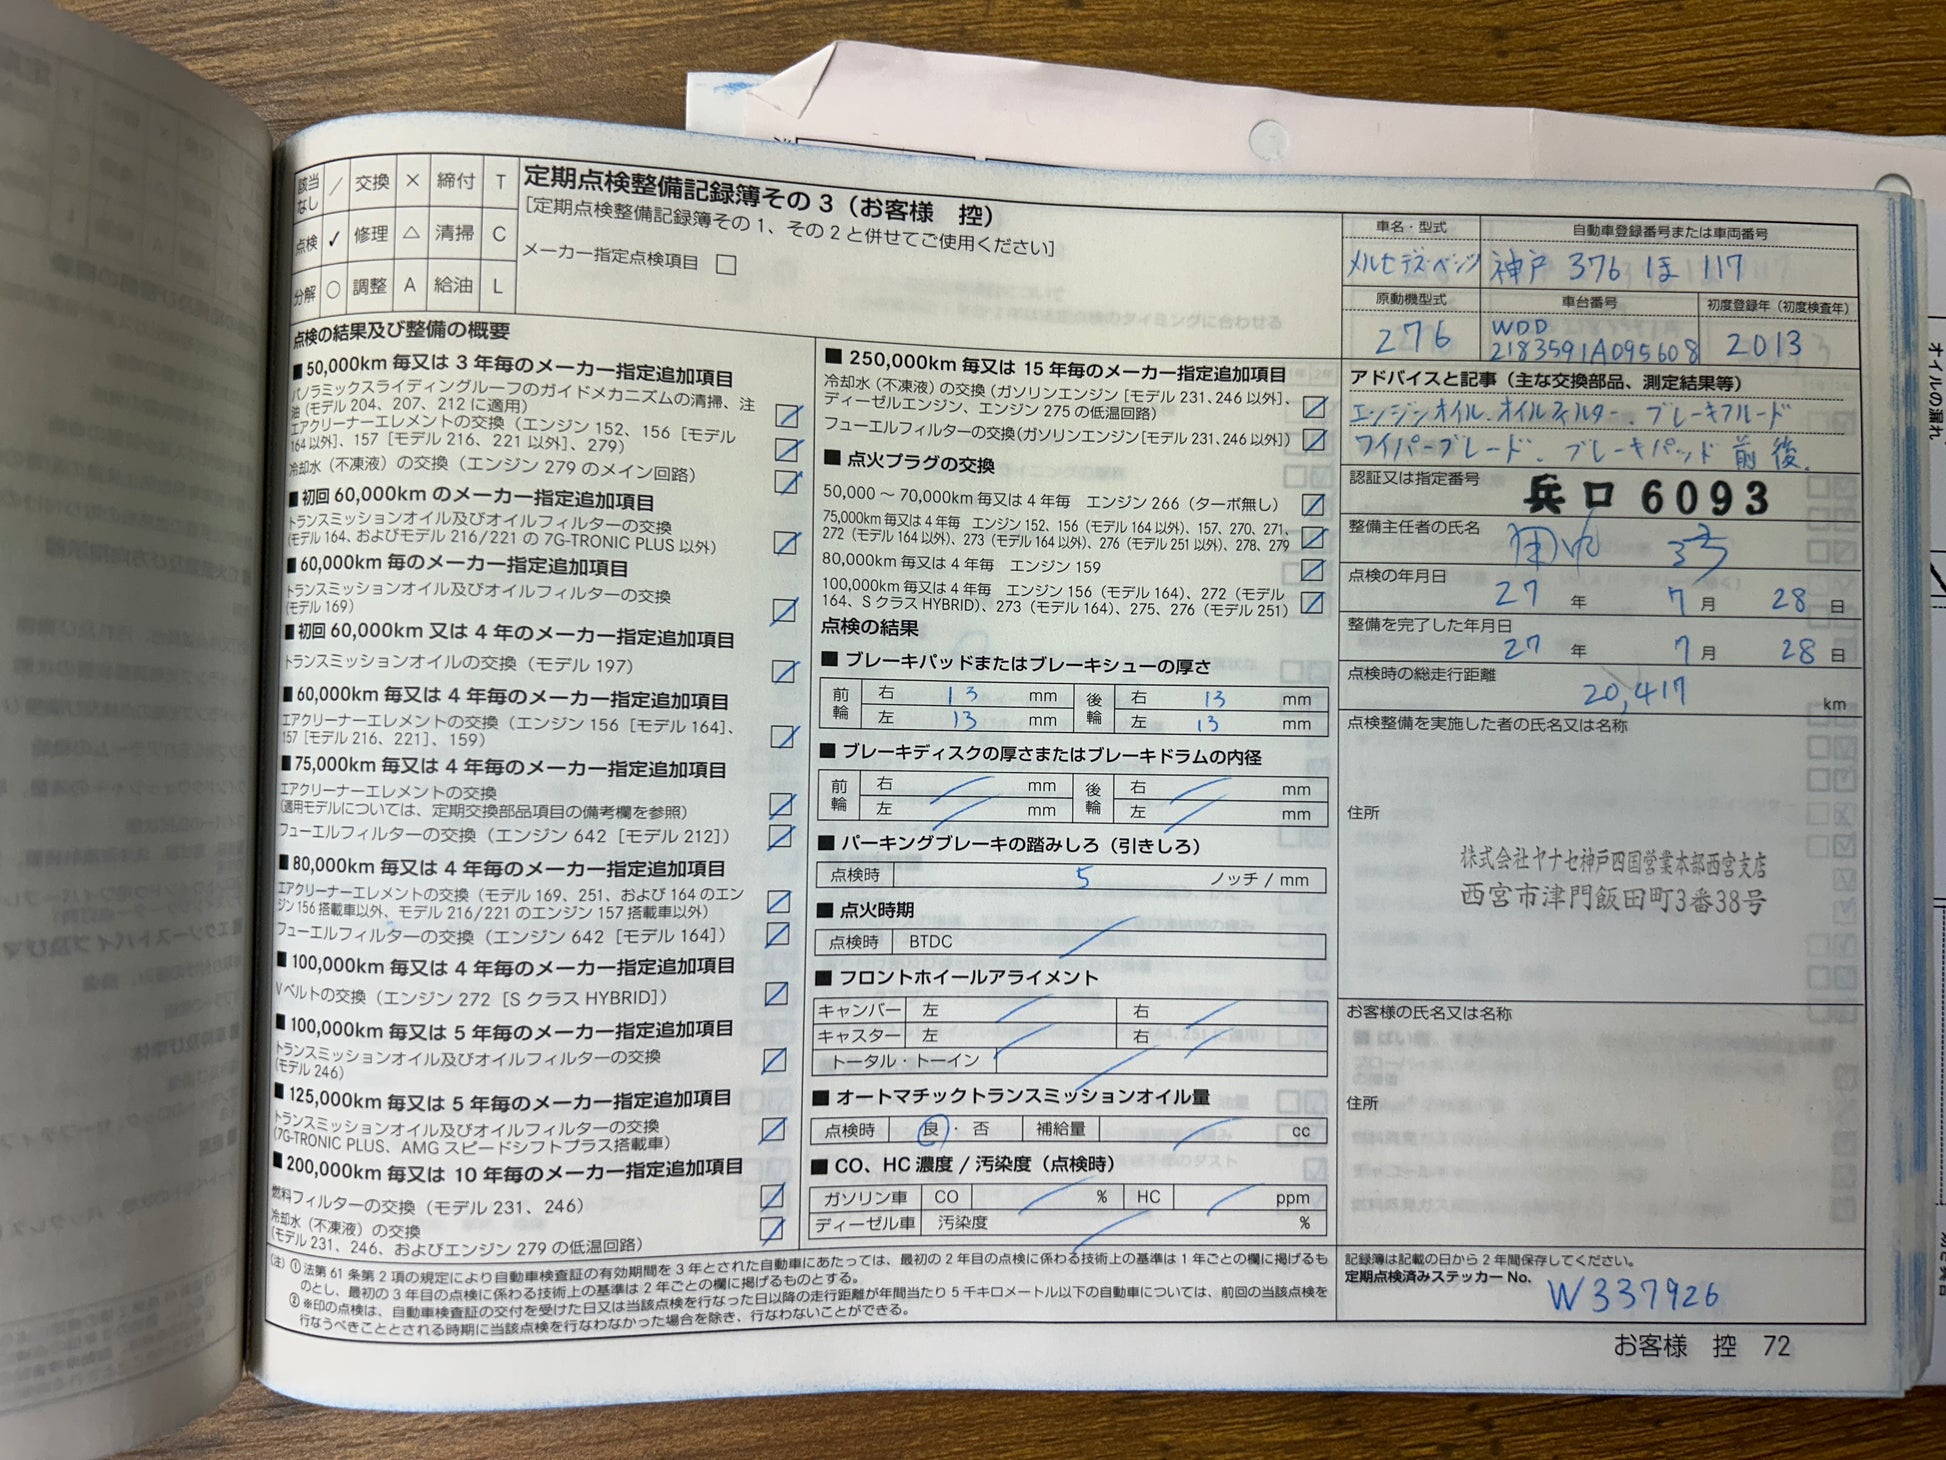 該当なし ／ 交換 × 締付 T
点検 ✓ 修理 △ 清掃 C
分解 ○ 調整 A 給油 L
定期点検整備記録簿その3（お客様　控）
［定期点検整備記録簿その1、その2と併せてご使用ください］
メーカー指定点検項目 □
点検の結果及び整備の概要
■ 50,000km 毎又は3年毎のメーカー指定追加項目
パノラミックスライディングルーフのガイドメカニズムの清掃、注
油（モデル 204、207、212 に適用）
エアクリーナーエレメントの交換（エンジン 152、156［モデル
164 以外］、157［モデル 216、221 以外］、279）
冷却水（不凍液）の交換（エンジン 279 のメイン回路）
■ 初回 60,000km のメーカー指定追加項目
トランスミッションオイル及びオイルフィルターの交換
（モデル 164、およびモデル 216/221 の 7G-TRONIC PLUS 以外）
■ 60,000km 毎のメーカー指定追加項目
トランスミッションオイル及びオイルフィルターの交換
（モデル 169）
■ 初回 60,000km 又は4年毎のメーカー指定追加項目
トランスミッションオイルの交換（モデル 197）
■ 60,000km 毎又は4年毎のメーカー指定追加項目
エアクリーナーエレメントの交換（エンジン 156［モデル 164］、
157［モデル 216、221］、159）
■ 75,000km 毎又は4年毎のメーカー指定追加項目
エアクリーナーエレメントの交換
（適用モデルについては、定期交換部品項目の備考欄を参照）
フューエルフィルターの交換（エンジン 642［モデル 212］）
■ 80,000km 毎又は4年毎のメーカー指定追加項目
エアクリーナーエレメントの交換（モデル 169、251、および 164 のエン
ジン 156 搭載車以外、モデル 216/221 のエンジン 157 搭載車以外）
フューエルフィルターの交換（エンジン 642［モデル 164］）
■ 100,000km 毎又は4年毎のメーカー指定追加項目
Vベルトの交換（エンジン 272［SクラスHYBRID］）
■ 100,000km 毎又は5年毎のメーカー指定追加項目
トランスミッションオイル及びオイルフィルターの交換
（モデル 246）
■ 125,000km 毎又は5年毎のメーカー指定追加項目
トランスミッションオイル及びオイルフィルターの交換
（7G-TRONIC PLUS、AMG スピードシフトプラス搭載車）
■ 200,000km 毎又は10年毎のメーカー指定追加項目
燃料フィルターの交換（モデル 231、246）
冷却水（不凍液）の交換
（モデル 231、246、およびエンジン 279 の低温回路）
■ 250,000km 毎又は15年毎のメーカー指定追加項目
冷却水（不凍液）の交換（ガソリンエンジン［モデル 231、246 以外］、
ディーゼルエンジン、エンジン 275 の低温回路）
フューエルフィルターの交換（ガソリンエンジン［モデル 231、246 以外］）
■ 点火プラグの交換
50,000 ～ 70,000km 毎又は4年毎　エンジン 266（ターボ無し）
75,000km 毎又は4年毎　エンジン 152、156（モデル 164 以外）、157、270、271、
272（モデル 164 以外）、273（モデル 164 以外）、276（モデル 251 以外）、278、279
80,000km 毎又は4年毎　エンジン 159
100,000km 毎又は4年毎　エンジン 156（モデル 164）、272（モデル
164、SクラスHYBRID）、273（モデル 164）、275、276（モデル 251）
点検の結果
■ ブレーキパッドまたはブレーキシューの厚さ
前輪 右 13 mm 後輪 右 13 mm
左 13 mm 左 13 mm
■ ブレーキディスクの厚さまたはブレーキドラムの内径
前輪 右 mm 後輪 右 mm
左 mm 左 mm
■ パーキングブレーキの踏みしろ（引きしろ）
点検時 5 ノッチ / mm
■ 点火時期
点検時 BTDC
■ フロントホイールアライメント
キャンバー 左 右
キャスター 左 右
トータル・トーイン
■ オートマチックトランスミッションオイル量
点検時 良・否 補給量 cc
■ CO、HC 濃度 / 汚染度（点検時）
ガソリン車 CO % HC ppm
ディーゼル車 汚染度 %
車名・型式 自動車登録番号または車両番号
メルセデス・ベンツ 神戸 376 ほ 117
原動機型式 車台番号 初度登録年（初度検査年）
276 WDD
2183591A095608 2013
アドバイスと記事（主な交換部品、測定結果等）
エンジンオイル．オイルフィルター．ブレーキフルード
ワイパーブレード．ブレーキパッド 前後．
認証又は指定番号 兵口6093
整備主任者の氏名
点検の年月日
27 年 7 月 28 日
整備を完了した年月日
27 年 7 月 28 日
点検時の総走行距離
20,417 km
点検整備を実施した者の氏名又は名称
住所
株式会社ヤナセ神戸四国営業本部西宮支店
西宮市津門飯田町3番38号
お客様の氏名又は名称
住所
（注）① 法第 61 条第 2 項の規定により自動車検査証の有効期間を 3 年とされた自動車にあたっては、最初の 2 年目の点検に係わる技術上の基準は 1 年ごとの欄に掲げるも
のとし、最初の 3 年目の点検に係わる技術上の基準は 2 年ごとの欄に掲げるものとする。
② ※印の点検は、自動車検査証の交付を受けた日又は当該点検を行なった日以降の走行距離が年間当たり 5 千キロメートル以下の自動車については、前回の当該点検を
行なうべきこととされる時期に当該点検を行なわなかった場合を除き、行なわないことができる。
記録簿は記載の日から 2 年間保存してください。
定期点検済みステッカー No. W337926
お客様　控　72
オイルの漏れ